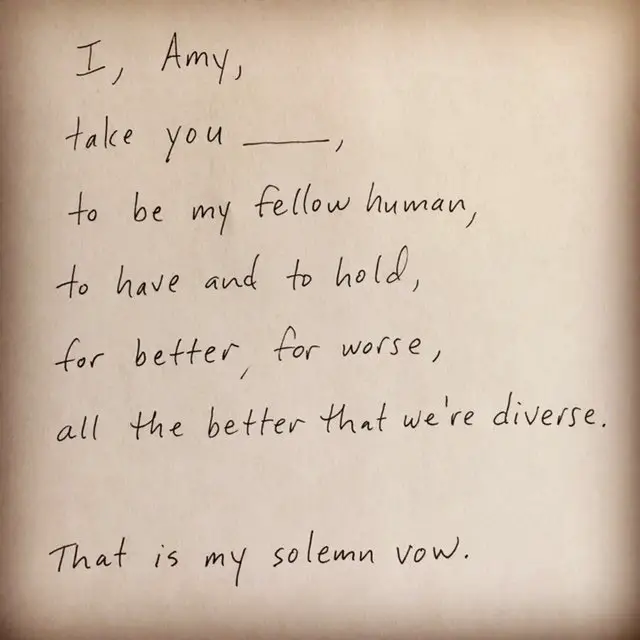 I, Amy,
take you ____,
to be my fellow human,
to have and to hold,
for better, for worse,
all the better that we're diverse.
That is my solemn vow.